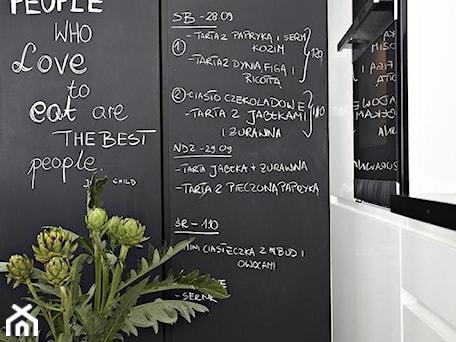 PEOPLE
WHO
Love
to
eat are
THE BEST
people
CHILD
SB - 28.09
① - TARTA Z PAPRYKĄ I SEREM
KOZIM
- TARTA Z DYNIĄ, FIGĄ I
RICOTTĄ
② - CIASTO CZEKOLADOWE
- TARTA Z JABŁKAMI
I ŻURAWINĄ
NDZ - 29.09
- TARTA JABŁKA + ŻURAWINA
- TARTA Z PIECZONĄ PAPRYKĄ
ŚR - 1.10
CIASTECZKA Z BUDI
OWOCAMI
- SERNI